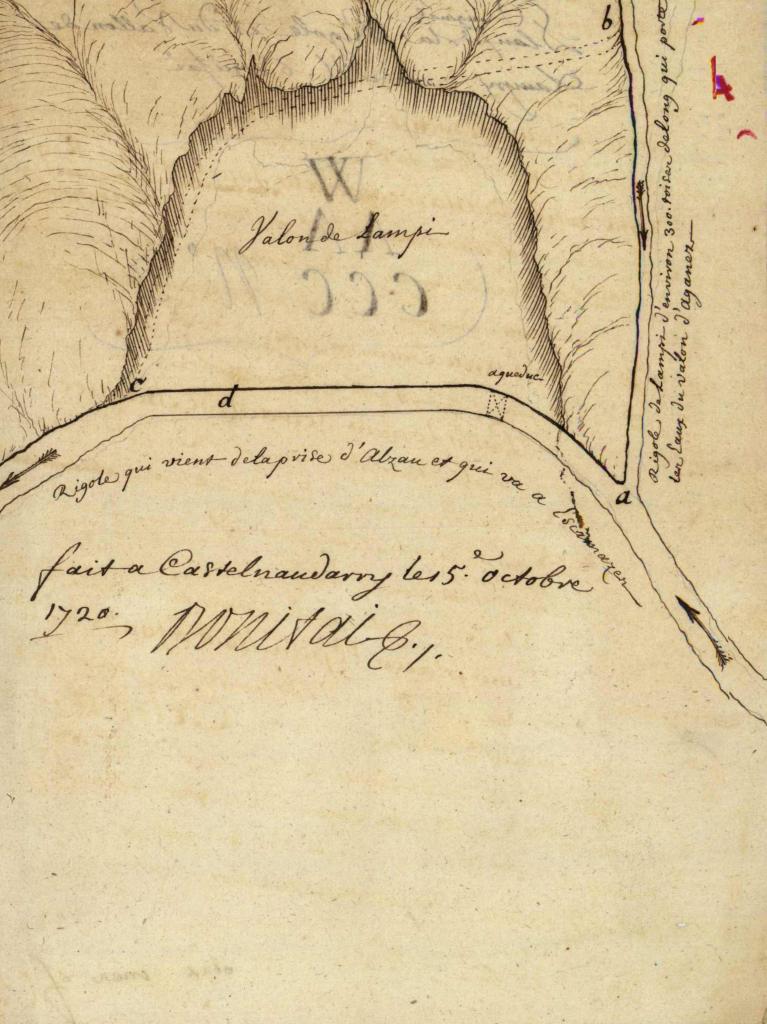 b
Rigole de Lampi d'environ 300. toises de long qui porte
les Eaux du valon d'aganez
Valon de Lampi
c
d
aqueduc
a
Rigole qui vient de la prise d'Alzau et qui va a Escamazes
fait a Castelnaudarry les 5.e octobre
1720.